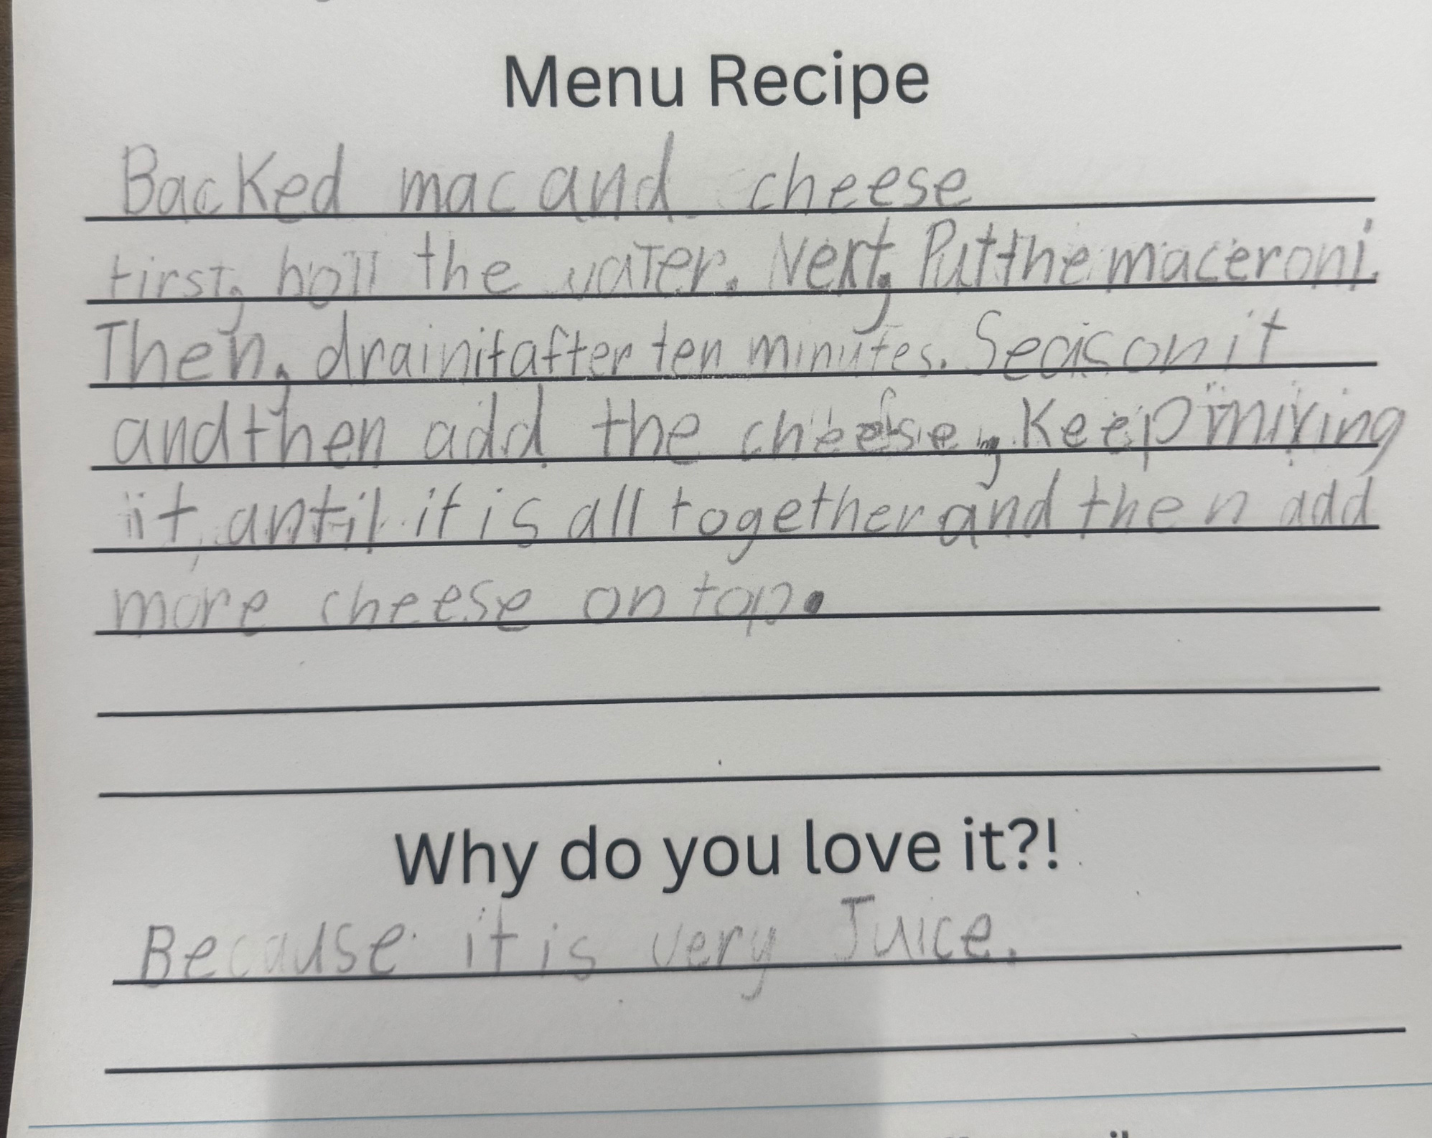 Menu Recipe
Backed mac and cheese
first, boil the water. Next, Put the maceroni.
Then, drain it after ten minutes. Season it
and then add the cheese, Keep mixing
it, until it is all together and then add
more cheese on top.
Why do you love it?!
Because it is very Juice.